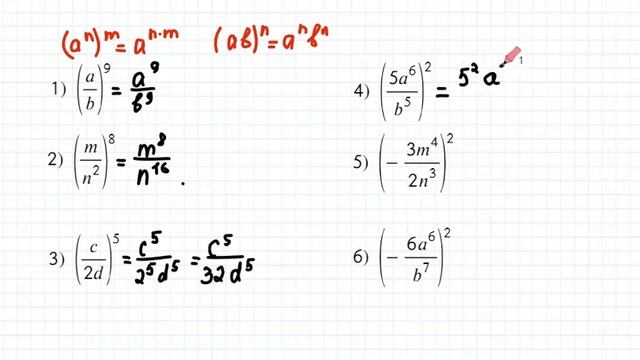 (aⁿ)ᵐ = aⁿ·ᵐ (ab)ⁿ = aⁿbⁿ
1) (a/b)⁹ = a⁹/b⁹
2) (m/n²)⁸ = m⁸/n¹⁶ .
3) (c/2d)⁵ = c⁵/2⁵d⁵ = c⁵/32d⁵
4) (5a⁶/b⁵)² = 5² a
5) (− 3m⁴/2n³)²
6) (− 6a⁶/b⁷)²